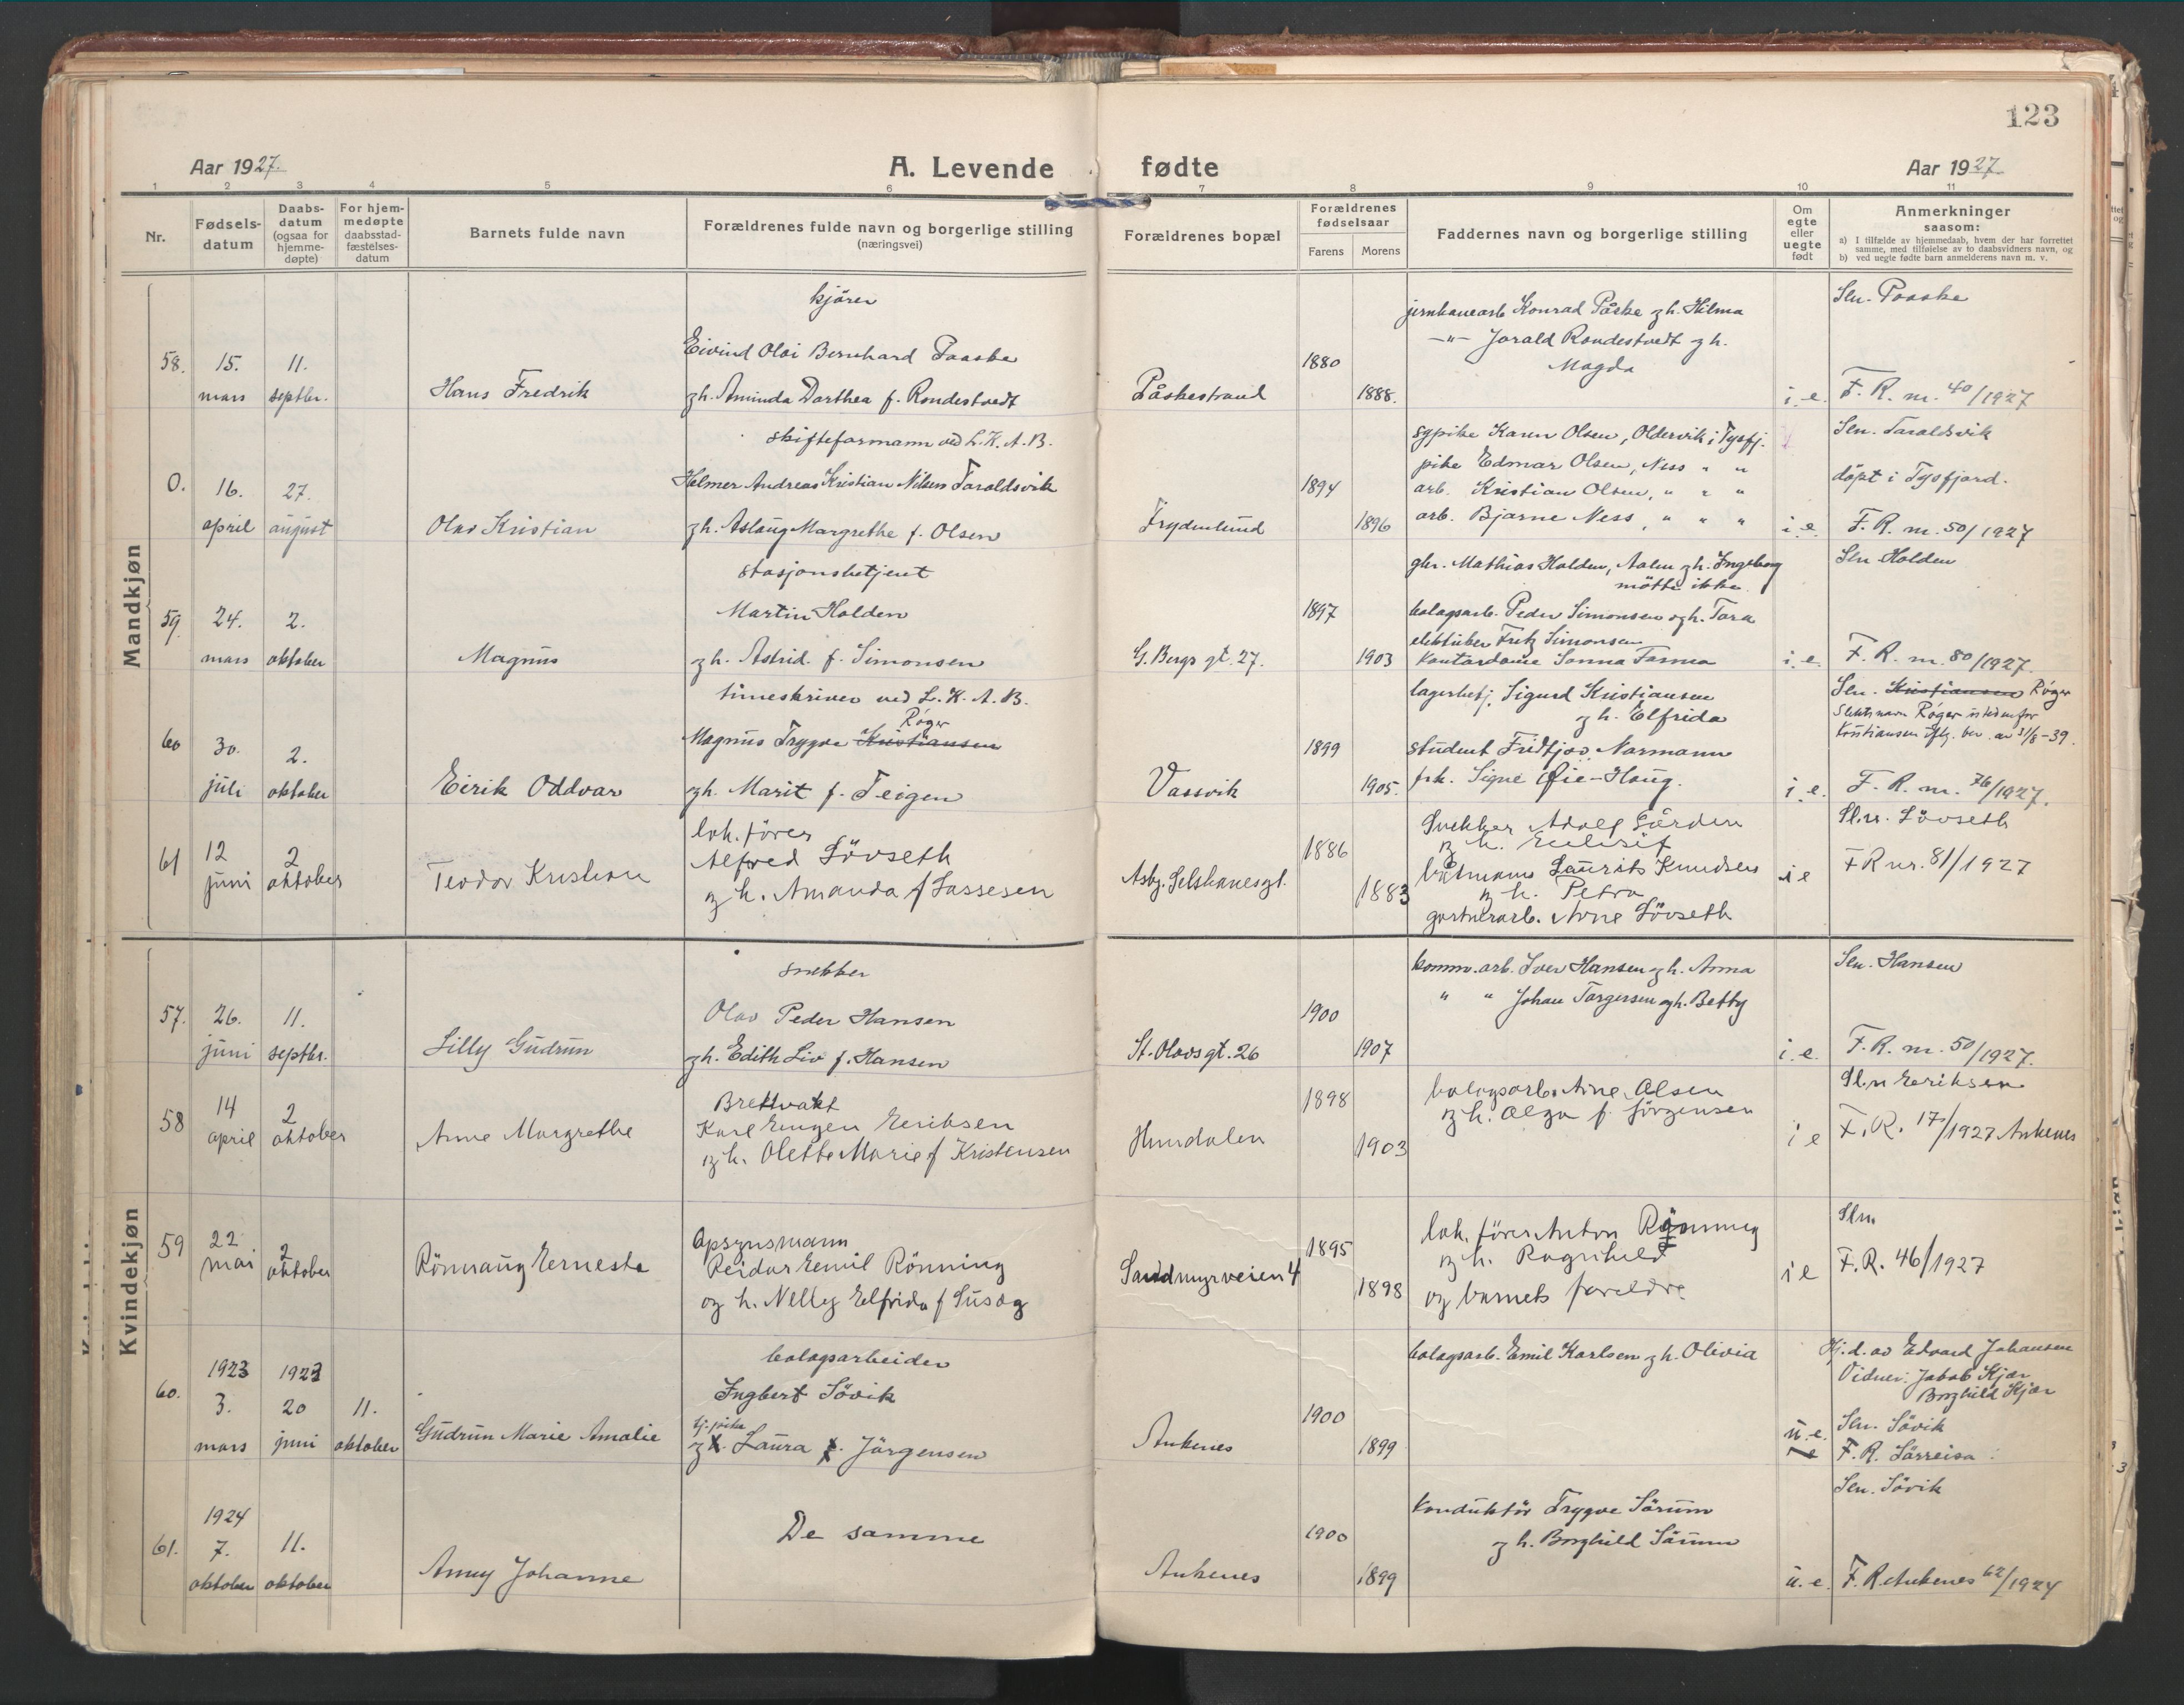 123
Aar 1927.
A. Levende fødte
Aar 1927.
1 2 3 4 5 6 7 8 9 10 11
Nr.
Fødsels-
datum
Daabs-
datum
(ogsaa for
hjemme-
døpte)
For hjem-
medøpte
daabsstad-
fæstelses-
datum
Barnets fulde navn
Forældrenes fulde navn og borgerlige stilling
(næringsvei)
Forældrenes bopæl
Forældrenes
fødselsaar
Farens
Morens
Faddernes navn og borgerlige stilling
Om
egte
eller
uegte
født
Anmerkninger
saasom:
a) I tilfælde av hjemmedaab, hvem der har forrettet
samme, med tilføielse av to daabsvidners navn, og
b) ved uegte fødte barn anmelderens navn m. v.
Mandkjøn
58.
15.
mars
11.
septbr.
Hans Fredrik
kjører
Eivind Olai Bernhard Paaske
og h. Aminda Dorthea f. Rondestvedt
Påskestrand
1880
1888.
jernbanearb Konrad Påske og h. Hilma
-"- Jarald Rondestvedt og h.
Magda
i. e.
Sln. Paaske
F. R. nr. 40/1927
0.
16.
april
27.
august
Olav Kristian
skifteformann ved L.K.A.B.
Helmer Andreas Kristian Nilsen Taraldsvik
og h. Aslaug Margrethe f. Olsen
Frydenlund
1894
1896
sypike Karen Olsen, Oldervik i Tysfj.
pike Edmar Olsen, Ness " "
arb. Kristian Olsen, " " "
arb. Bjarne Ness, " " "
i. e.
Sln. Taraldsvik
döpt i Tysfjord.
F. R. nr. 50/1927
59.
24.
mars
2.
oktober
Magnus
stasjonsbetjent
Martin Holden
og h. Astrid. f. Simonsen
G. Bergs gt. 27.
1897
1903
gbr. Mathias Holden, Aalen og h. Ingeborg
mötte ikke.
bolagsarb. Peder Simonsen og h. Tora
elektriker Fritz Simonsen
Kontordame Sanna
i. e.
Sln Holden
F. R. nr. 80/1927.
60
30.
juli
2.
oktober
Eirik Oddvar
timeskriver ved L.K.A.B.
Röger
Magnus Trygve Kristiansen
og h. Marit f. Teigen
Vassvik
1899
1905.
lagerbetj. Sigurd Kristiansen
og h. Elfrida
student Fridtjov Normann
frk. Signe Øie-Haug.
i. e.
Sln. Kristiansen Röger
Slektsnavn Röger istedenfor
Kristiansen iflg. bev. av 31/8-39.
F. R. nr. 76/1927.
61
12
juni
2
oktober
Teodor Kristian
lok. förer
Alfred Lövseth
og h. Amanda f Lassesen
Asbj. Selsbanesgt.
1886
1883
Snekker Adolf Gården
og h.
båtmann Laurits Knudsen
og h. Petra
gartnerarb. Arne Lövseth
i e
Sln. Lövseth
F R nr. 81/1927
Kvindekjøn
57.
26.
juni
11.
septbr.
Lilly Gudrun
snekker
Olav Peder Hansen
og h. Edith Liv f. Hansen
St. Olavsgt. 26
1900
1907
komm. arb. Iver Hansen og h. Anna
" " Johan Torgersen og h. Betty
i. e.
Sln. Hansen
F. R. nr. 50/1927.
58
14
april
2
oktober
Anne Margrethe
Brettvakt
Karl Eugen Eriksen
og h. Olette Marie f Kristensen
Hundalen
1898
1903
bolagsarb. Arne Olsen
og h. Olga f. Jörgensen
i e
Sln Eriksen
F. R. 17/1927 Ankenes
59
22
mai
2
oktober
Rönnaug Erneste
Opsynsmann
Reidar Emil Rönning
og h. Nelly Elfrida f Susåg
Sandmyrveien 4
1895
1898
lok. förer Anton Rönning
og h. Ragnhild
og barnets foreldre.
i e
Sln.
F. R. 46/1927
60.
1923
3.
mars
1923
20
juni
11.
oktober
Gudrun Marie Amalie
bolagsarbeider
Ingbert Sövik
tj. pike
og h. Laura f. Jörgensen
Ankenes
1900
1899
bolagsarb. Emil Karlsen og h. Olivia
u. e.
Hj. d. av Edvard Johansen
Vidner: Jakob Kjær
Borghild Kjær
Sln. Sövik
F. R. Sörreisa
61.
1924
7.
oktober
11.
oktober
Anny Johanne
De samme
Ankenes
1900
1899
Konduktör Trygve Sörum
og h. Borghild Sörum
u. e.
Sln. Sövik
F. R. Ankenes 62/1924